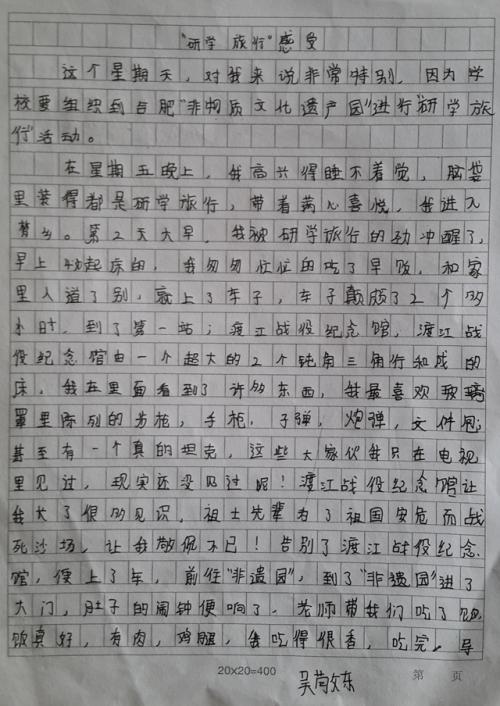 “研学旅行”感受
这个星期天，对我来说非常特别，因为学
校要组织到合肥“非物质文化遗产园”进行“研学旅
行”活动。
在星期五晚上，我高兴得睡不着觉，脑袋
里装得都是研学旅行，带着满心喜悦，我进入
梦乡。第2天大早，我被研学旅行的劲冲醒了，
早上起床的，我匆匆忙忙的吃了早饭，和家
里人道了别，就上了车子，车子颠颇了2个多
小时，到了第一站；渡江战役纪念馆，渡江战
役纪念馆由一个超大的2个钝角三角行和成的
床，我在里面看到了许多东西，我最喜欢玻璃
罩里陈列的步枪，手枪，子弹，炮弹，文件包
甚至有一个真的坦克，这些大家伙我只在电视
里见过，现实还没见过呢！渡江战役纪念馆让
我大了很多见识，祖士先辈为了祖国安危而战
死沙场，让我敬佩不已！告别了渡江战役纪念
馆，便上了车，前往“非遗园”，到了“非遗园”进了
大门，肚子的闹钟便响了，老师带我们吃了
饭真好，有肉，鸡腿，我吃得很香，吃完，导
20×20=400
第 页
东